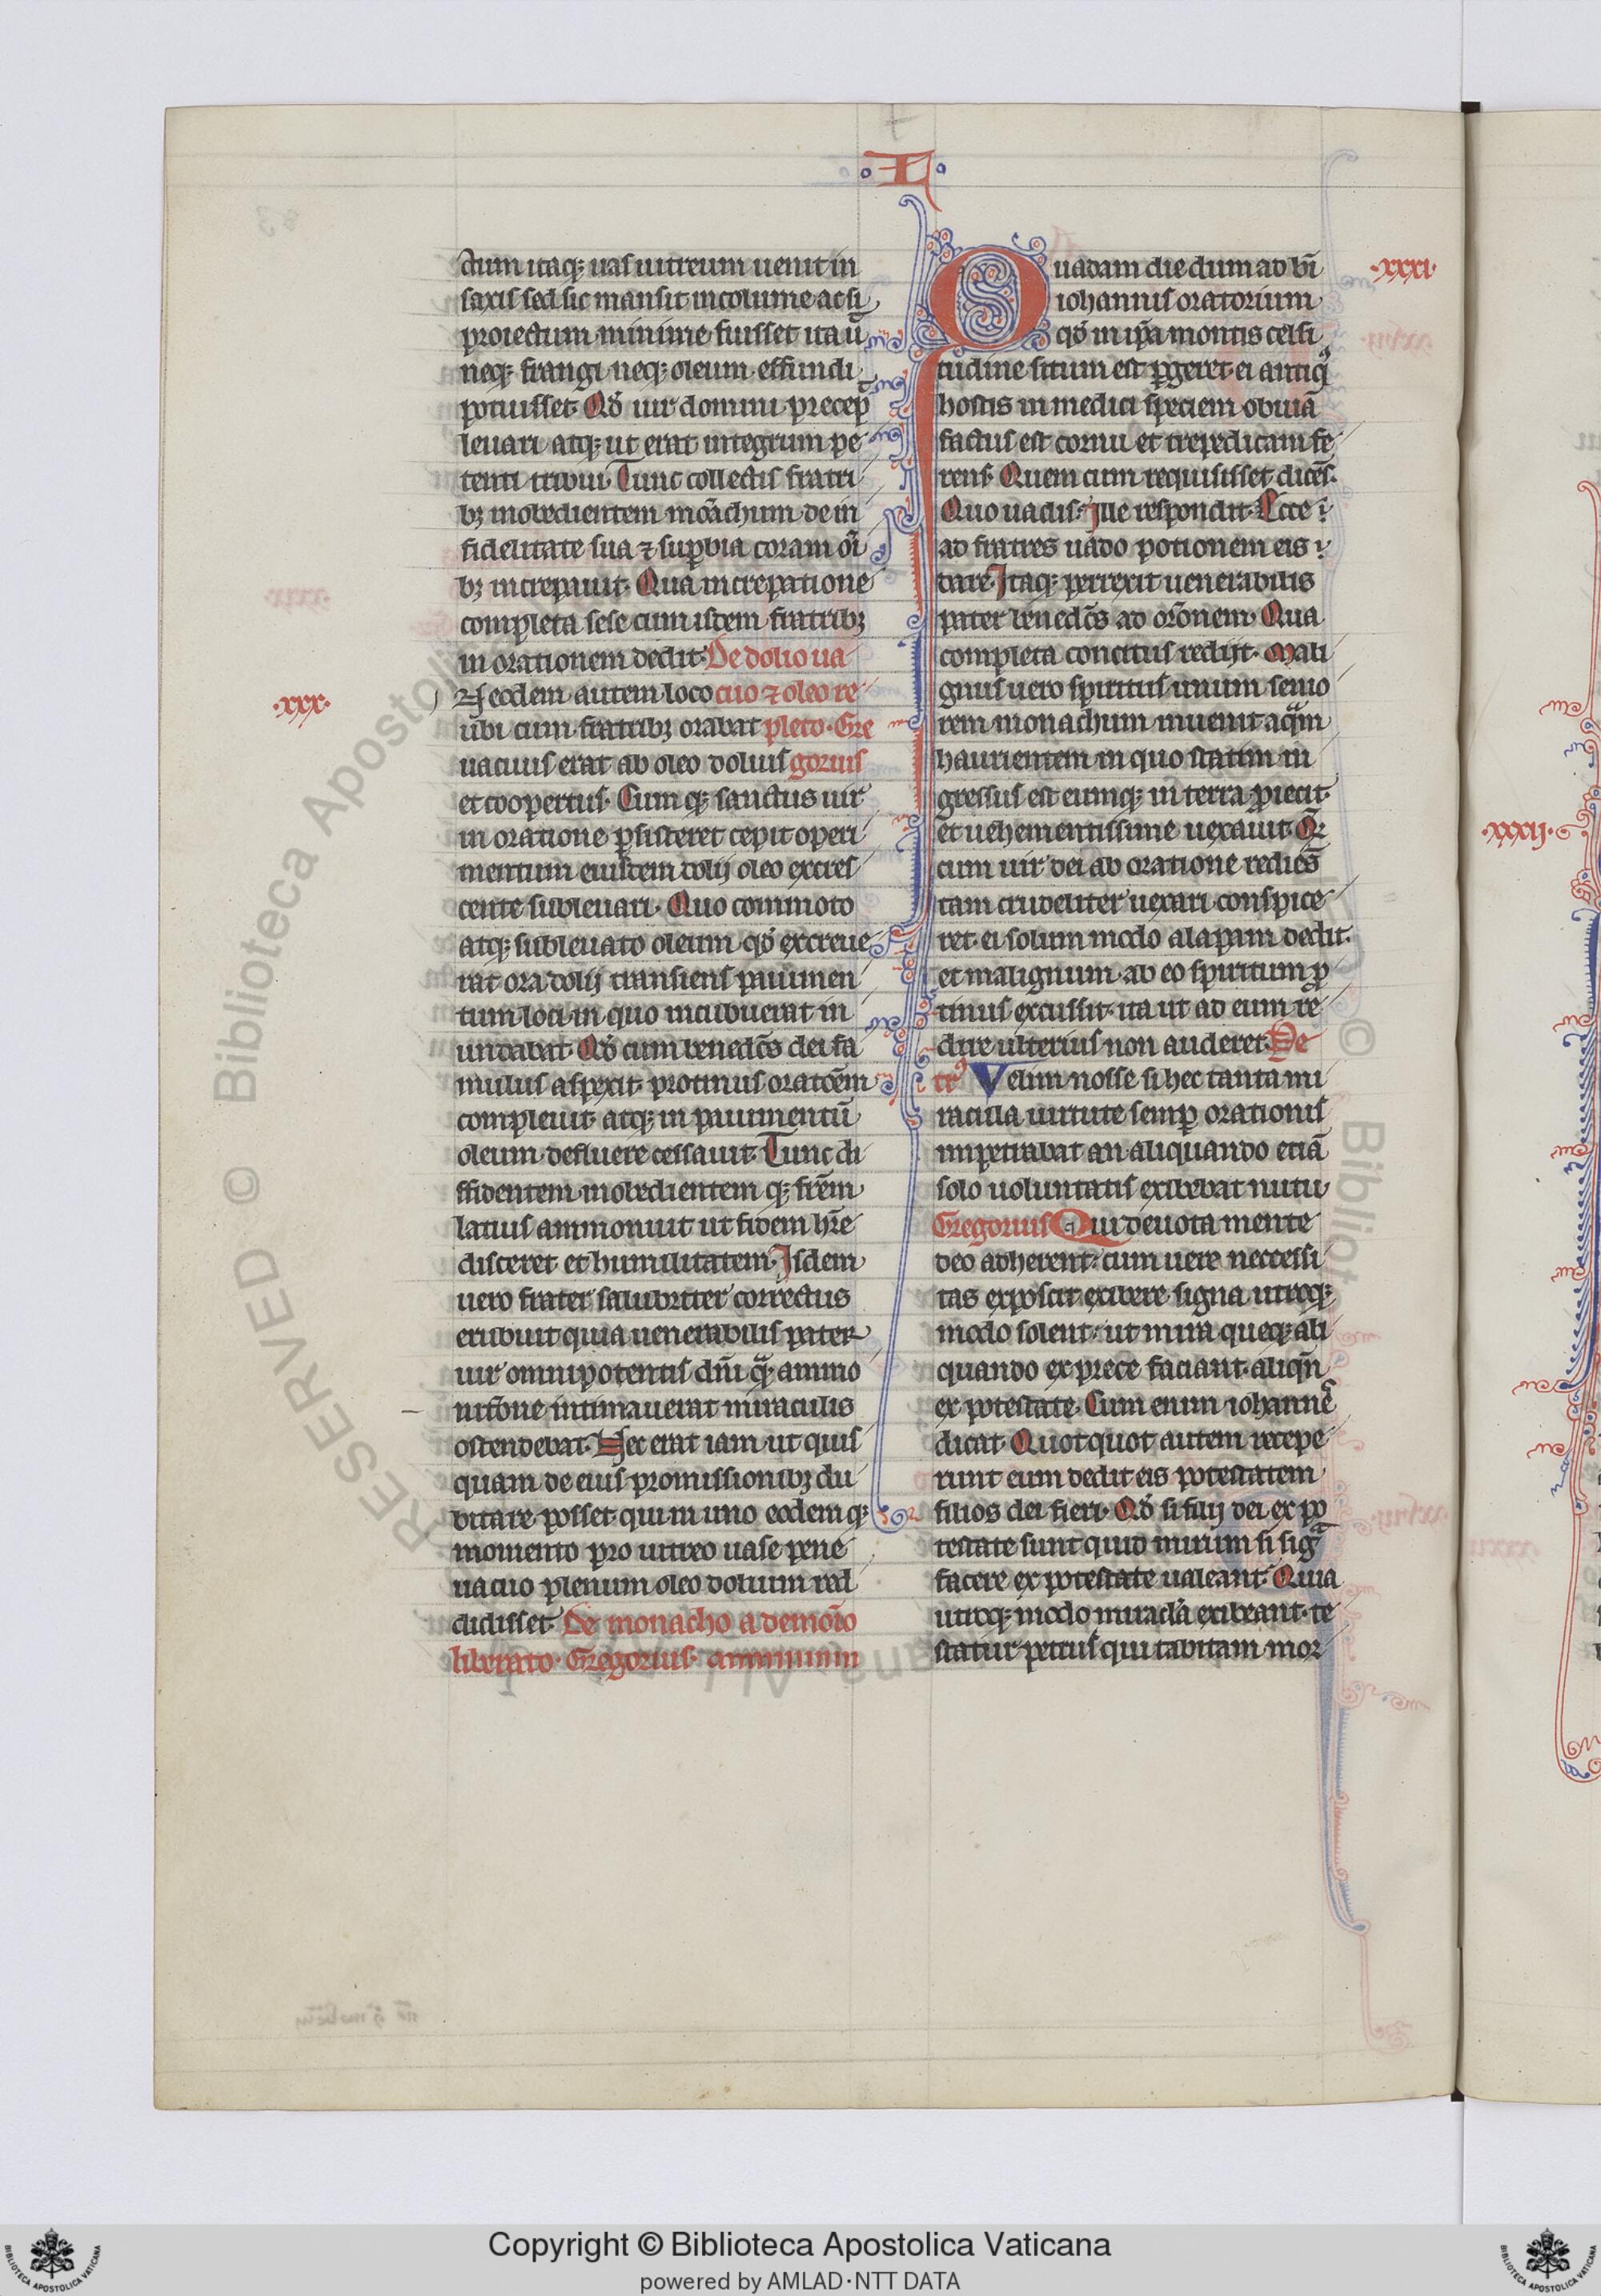 ·I·
ctum itaq; uas uitreum uenit in
saxis sed sic mansit incolume ac si
proiectum minime fuisset ita ū
neq; frangi neq; oleum effundi
potuisset. Qd̓ uir domini precep̄
leuari atq; ut erat integrum pe
tenti tribui. Tunc collectis fratri
bꝫ inobedientem mōachum de in
fidelitate sua ⁊ suꝑbia coram oı̄
bꝫ increpauit. Qua increpatione
completa sese cum isdem fratribꝫ
in orationem dedit. De dolio ua
·xxx·
IN eodem autem loco cuo ⁊ oleo re
ubi cum fratribꝫ orabat pleto. Gre
uacuus erat ab oleo dolius gorius
et coopertus. Cum q; sanctus uir
in oratione ꝑsisteret cepit operi
mentum eiusdem dolij oleo excres
cente subleuari. Quo commoto
atq; subleuato oleum qd̓ excreue
rat ora dolij transiens pauimen
tum loci in quo incubuerat in
undabat. Qd̓ cum benedc̄s dei fa
mulus aspexit protinus oratōem
compleuit atq; in pauimentū
oleum defluere cessauit. Tunc di
ffidentem inobedientem q; frēm
latius ammonuit ut fidem hr̄e
disceret et humilitatem. Isdem
uero frater salubriter correctus
erubuit quia uenerabilis pater
uir omnipotentis dn̄i qͣ ammo
nitōne intimauerat miraculis
ostendebat. Nec erat iam ut quis
quam de eius promissionibꝫ du
bitare posset qui in uno eodem q;
momento pro uitreo uase pene
uacuo plenum oleo dolium red
didisset. De monacho a demōio
liberato. Gregorius.
Quadam die dum ad bı̄
·xxxi·
iohannis oratorium
qd̓ in ip̄a montis celsi
tudine situm est ꝑgeret. ei antiqꝰ
hostis in medici speciem obuiā
factus est cornu et trepedicam fe
rens. Quem cum requisisset dicēs.
Quo uadis. Ille respondit. Ecce
ad fratres uado potionem eis
dare. Itaq; perrexit uenerabilis
pater benedc̄s ad orōnem. Qua
completa concitus redijt. Mali
gnus uero spiritus unum senio
rem monachum inuenit aqͣm
haurientem in quo statim in
gressus est eumq; in terra ꝓiecit
et uehementissime uexauit. Qͣꝫ
cum uir dei ab oratione rediēs
tam crudeliter uexari conspice
ret. ei solum modo alapam dedit.
et malignum ab eo spiritum ꝓ
tinus excussit. ita ut ad eum re
dire ulterius non auderet. Pe
trꝰ Velim nosse si hec tanta mi
racula uirtute semꝑ orationis
impetrabat an aliquando etiā
solo uoluntatis exibebat nutu
Gregorius Qui deuota mente
deo adherent. cum uere neccessi
tas exposcit exibere signa utroq;
modo solent. ut mira queq; ali
quando ex prece faciant. aliqn̄
ex potestate. Cum enim iohannes
dicat. Quotquot autem recepe
runt eum dedit eis potestatem
filios dei fieri. Qd̓ si filij dei ex po
testate sunt quid mirum si sigͣ
facere ex potestate ualeant. Quia
utroq; modo miracl̄a exibeant. te
statur petrus qui tabitam mor
·xxxij·
RESERVED © Biblioteca Apostoli
© Bibliot
Copyright © Biblioteca Apostolica Vaticana
powered by AMLAD·NTT DATA
BIBLIOTECA APOSTOLICA VATICANA
BIBLIOTECA APOSTOLICA VATICANA